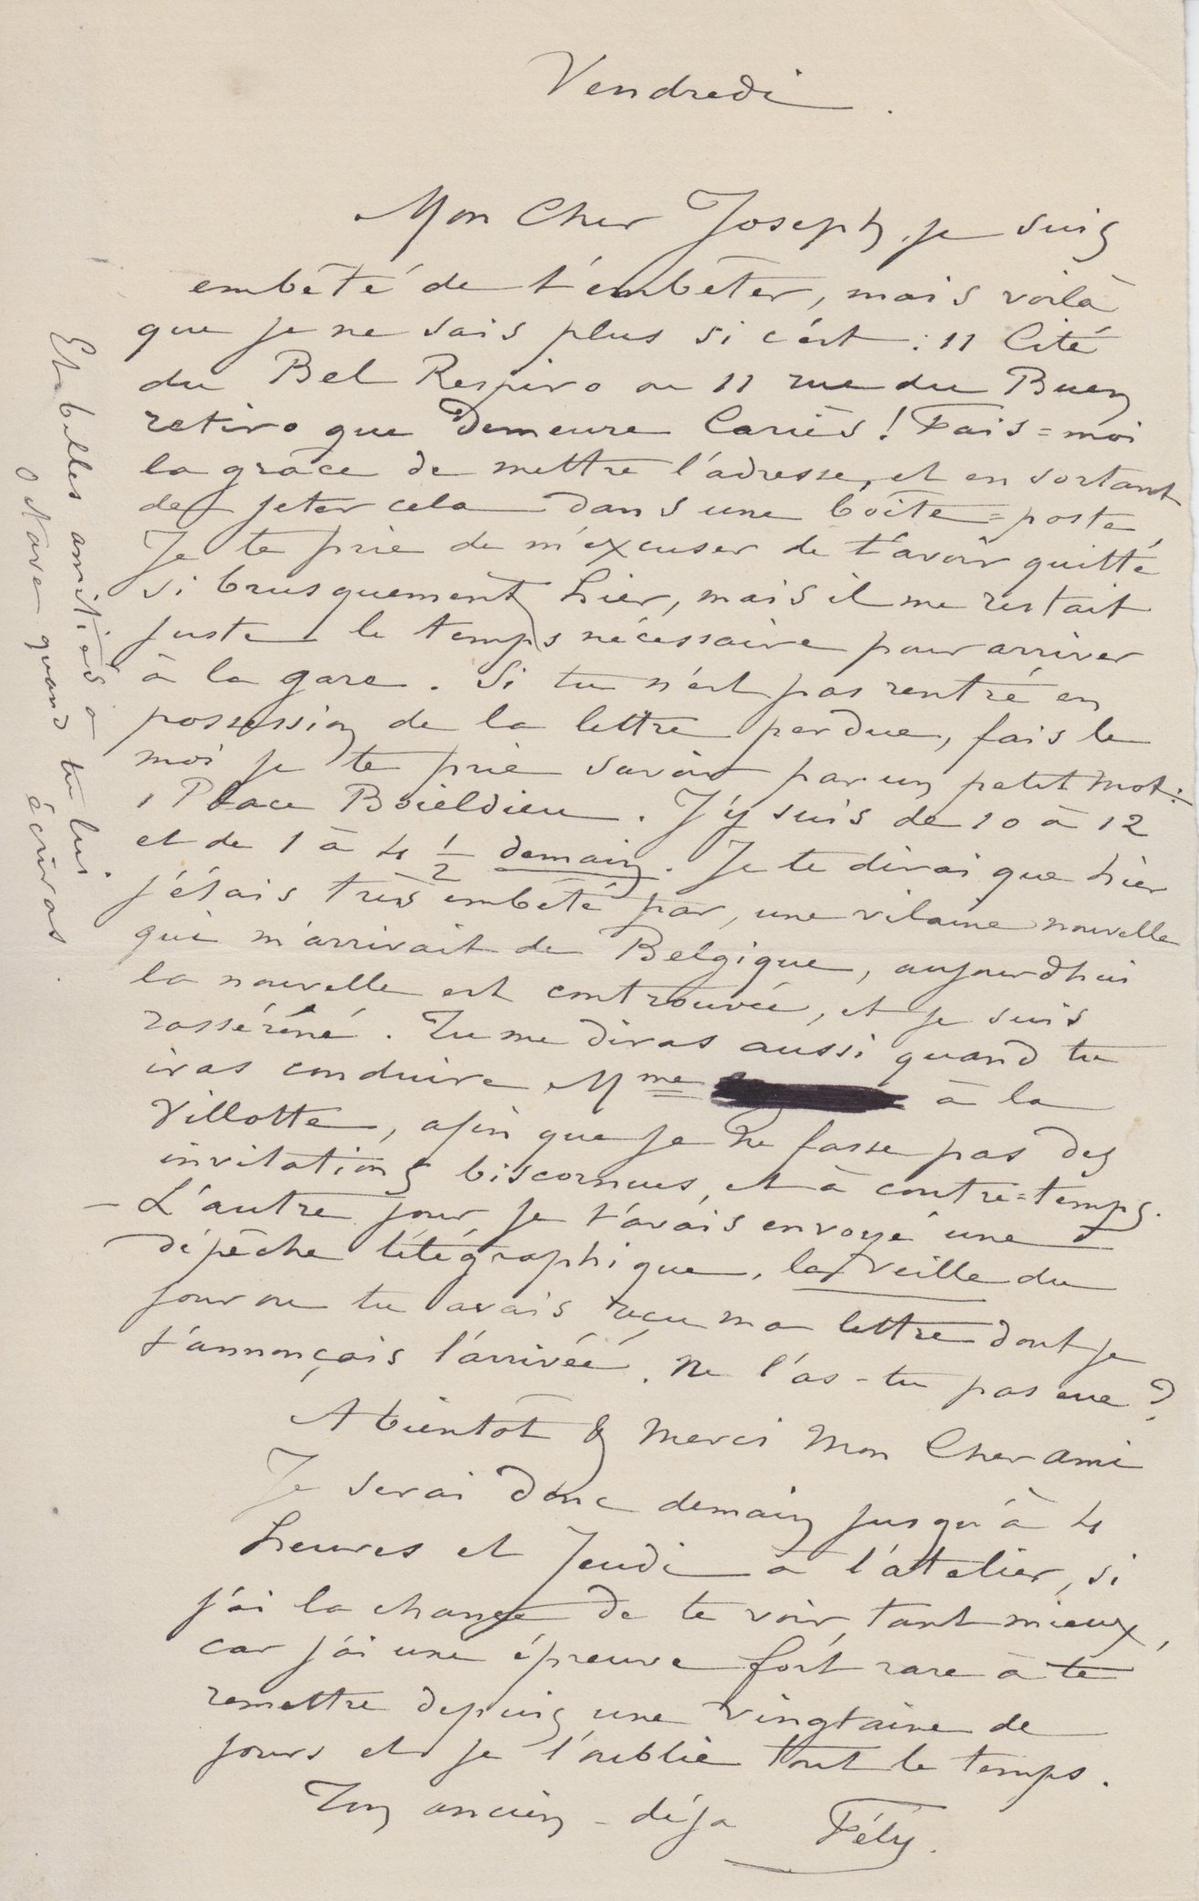 Vendredi.
Mon Cher Joseph, je suis
embêté de t'embêter, mais voilà
que je ne sais plus si c'est : 11 Cité
du Bel Respiro ou 11 rue du Buen
retiro que Demeure Cariès ! Fais=moi
la grâce de mettre l'adresse, et en sortant
de jeter cela dans une boîte=poste,
Je te prie de m'excuser de t'avoir quitté
si brusquement hier, mais il me restait
juste le temps nécessaire pour arriver
à la gare. Si tu n'est pas rentré en
possession de la lettre perdue, fais le
moi je te prie savoir par un petit mot :
1 Place Boieldieu. J'y suis de 10 à 12
et de 1 à 4 ½ demain. Je te dirai que hier
j'étais très embêté par, une vilaine nouvelle
qui m'arrivait de Belgique, aujourdhui
la nouvelle est controuvée, et je suis
rasséréné. Tu me diras aussi quand tu
iras conduire Mme à la
Villotte, afin que je ne fasse pas des
invitations biscornues, et à contre=temps.
– L'autre jour, je t'avais envoyé une
dépêche télégraphique, la veille du
jour ou tu avais reçu ma lettre dont je
t'annonçais l'arrivée. Ne l'as-tu pas eue ?
A bientôt & merci Mon Cher ami
Je serai donc demain jusqu'à 4
heures et Jeudi à l'atelier, si
j'ai la chance de te voir, tant mieux,
car j'ai une épreuve fort rare à te
remettre depuis une vingtaine de
jours et je l'oublie tout le temps.
Ton ancien – déjà Fély.
Et belles amitiés à
Octave quand tu lui
écriras.